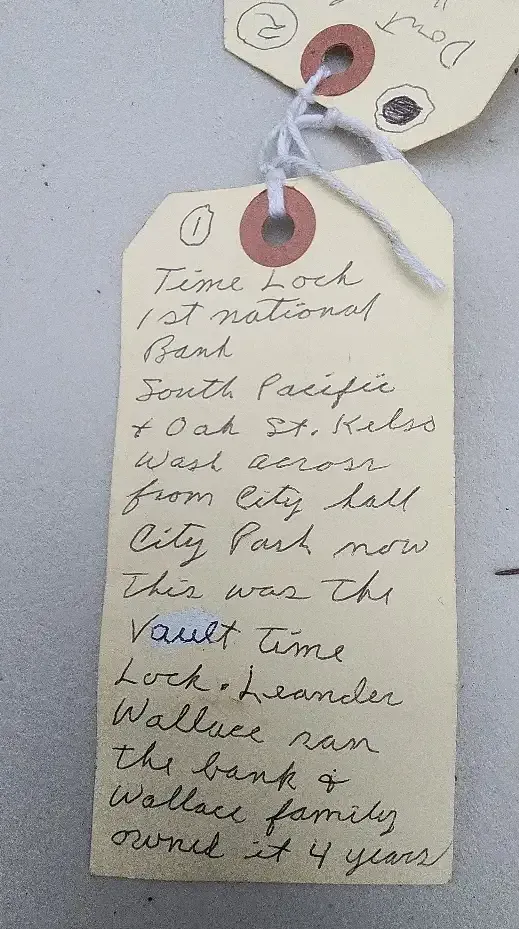 2
Dont
1
Time Lock
1st national
Bank
South Pacific
& Oak St. Kelso
Wash across
from City hall
City Park now
This was the
Vault Time
Lock. Leander
Wallace ran
the bank &
Wallace family
owned it 4 years